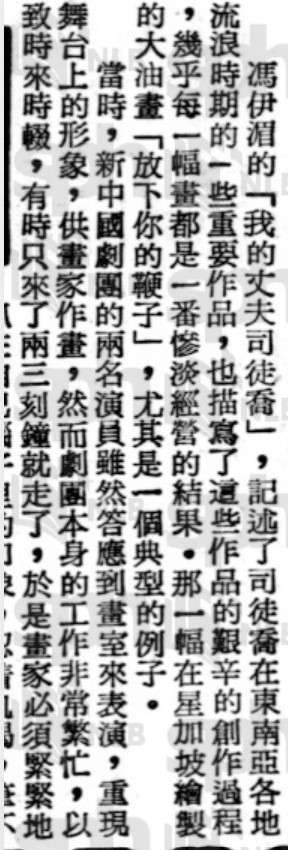 馮伊湄的「我的丈夫司徒喬」，記述了司徒喬在東南亞各地
流浪時期的一些重要作品，也描寫了這些作品的艱辛的創作過程
，幾乎每一幅畫都是一番慘淡經營的結果。那一幅在星加坡繪製
的大油畫「放下你的鞭子」，尤其是一個典型的例子。
當時，新中國劇團的兩名演員雖然答應到畫室來表演，重現
舞台上的形象，供畫家作畫，然而劇團本身的工作非常繁忙，以
致時來時輟，有時只來了兩三刻鐘就走了，於是畫家必須緊緊地